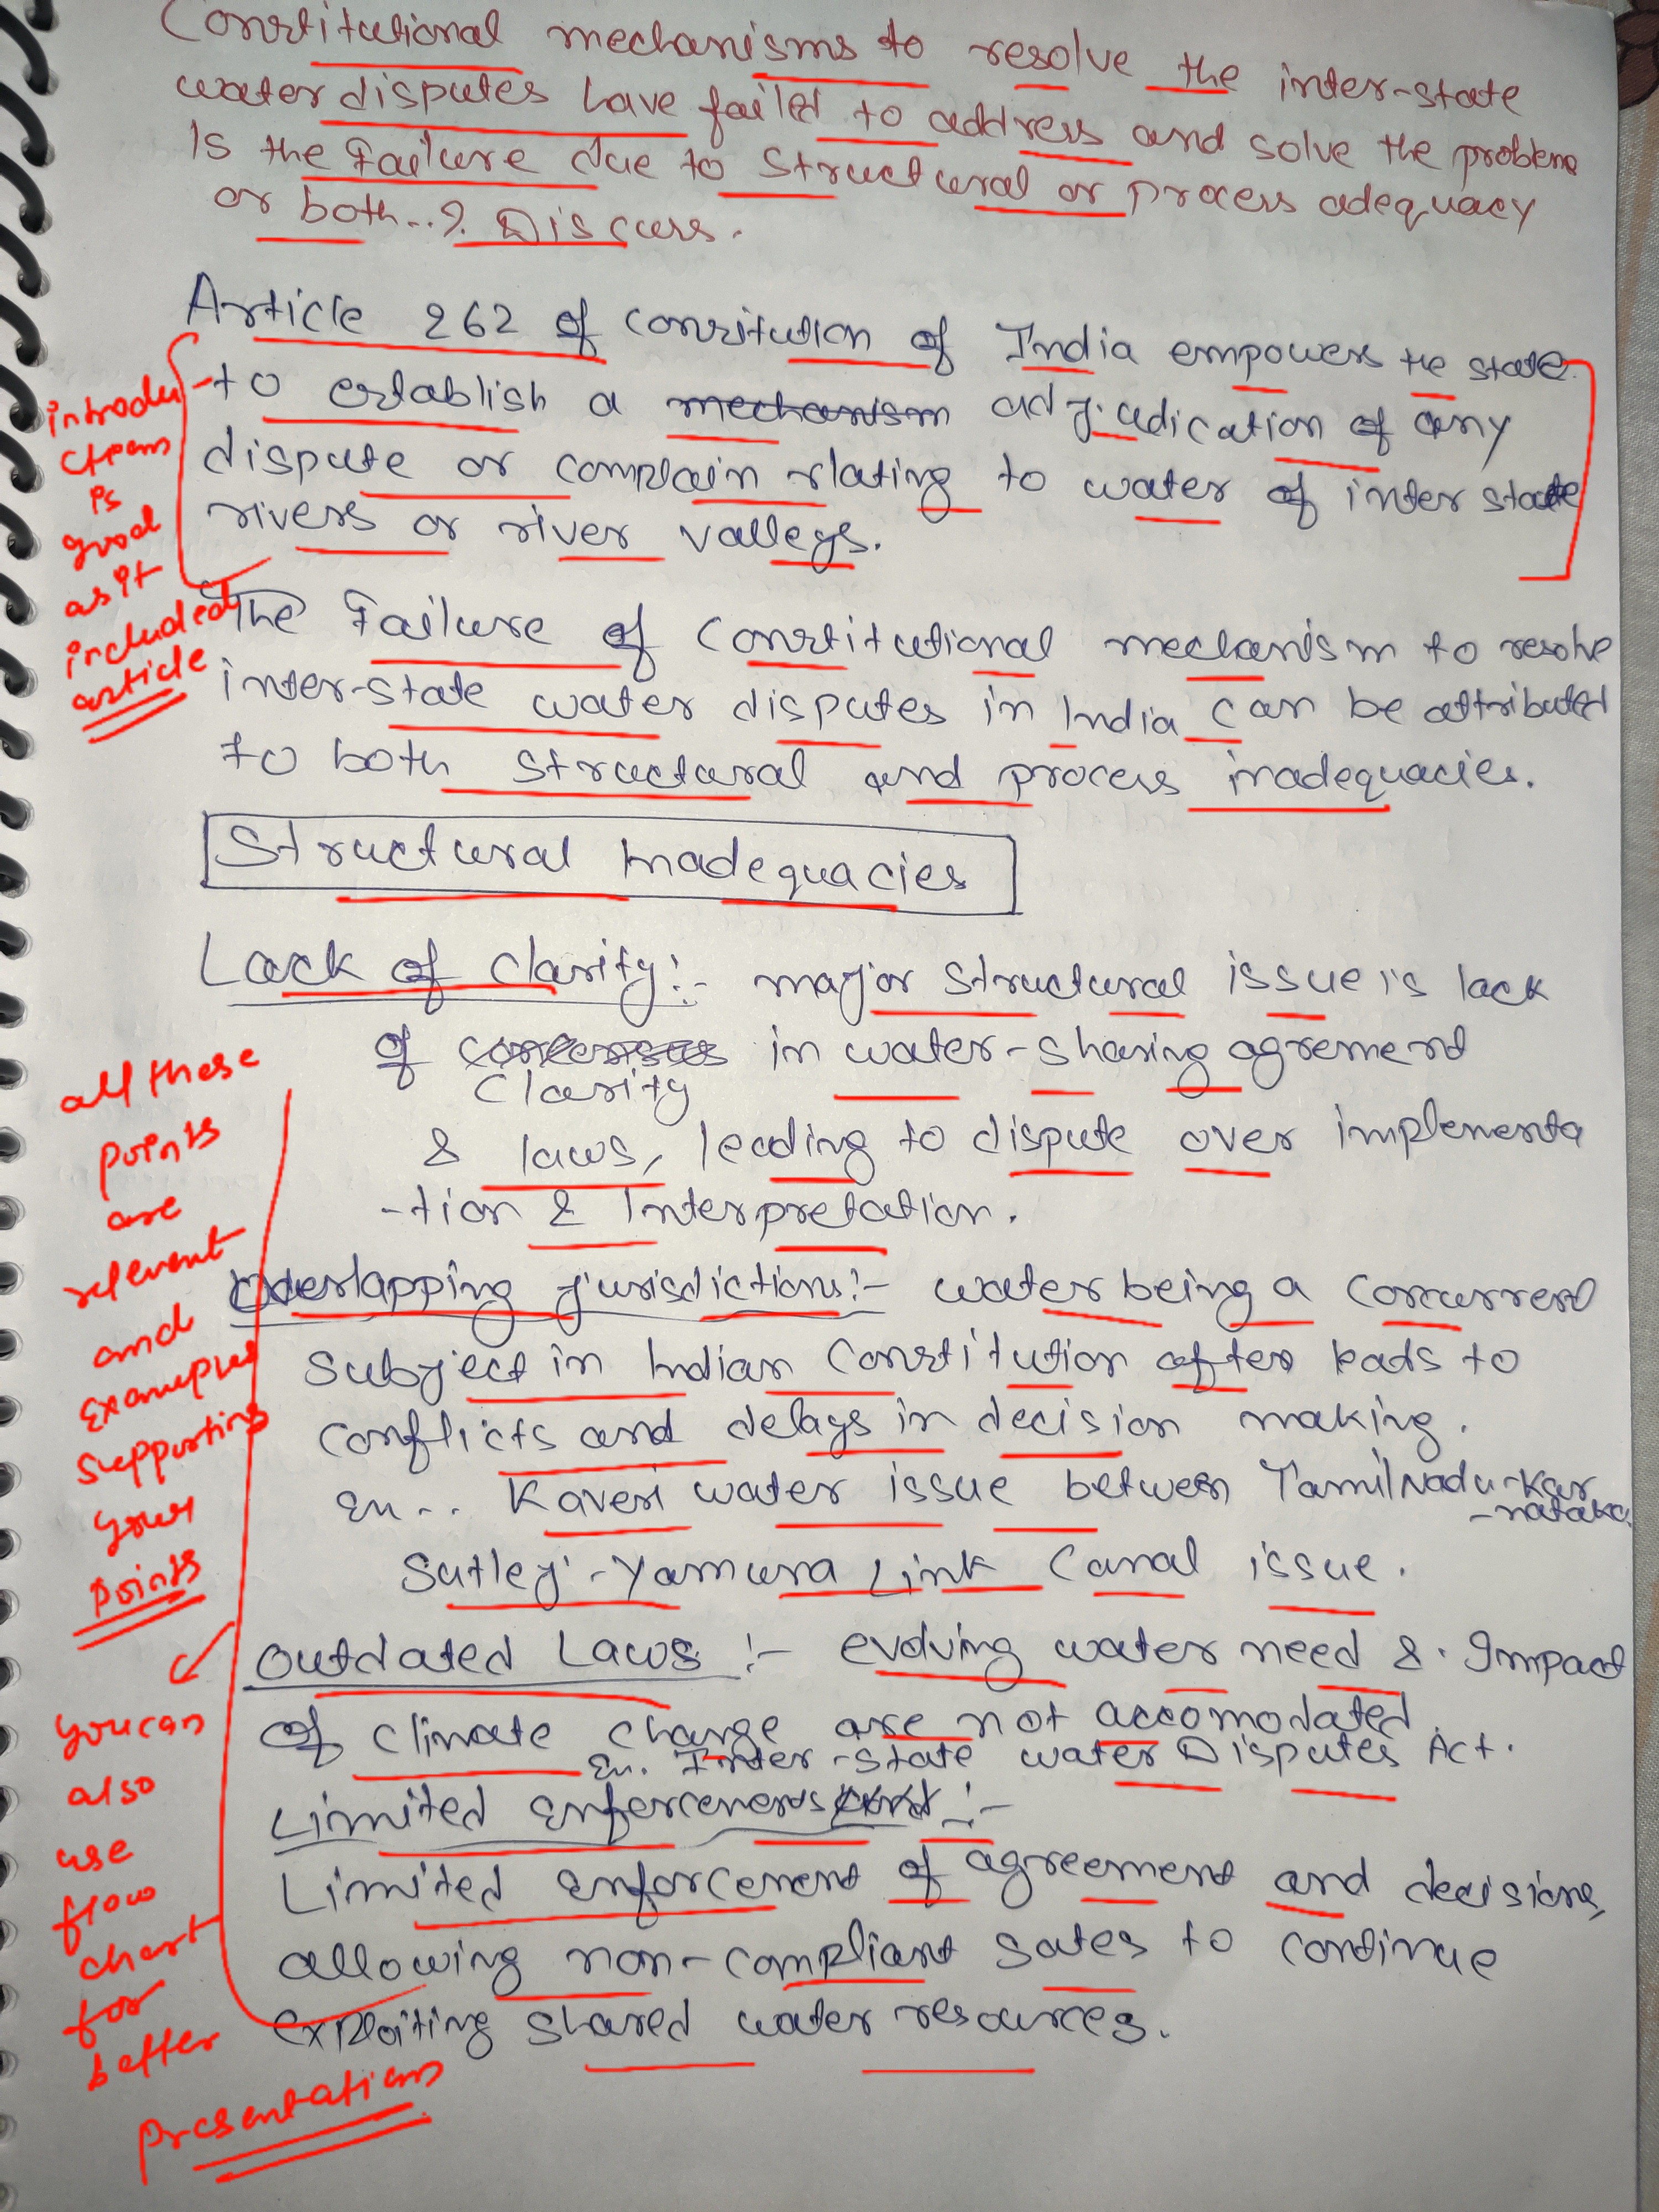 Constitutional mechanisms to resolve the inter-state
water disputes have failed to address and solve the problems
Is the Failure due to Structural or process adequacy
or both..? Discuss.
Article 262 of constitution of India empowers the state
-to establish a mechanism adjudication of any
dispute or complain rlating to water of inter state
rivers or river valleys.
introdu
ction
is
good
as it
included
article
The Failure of Constitutional mechanism to resolve
inter-state water disputes in India can be attributed
to both structural and process inadequacies.
Structural Inadequacies
Lack of clarity:- major structural issue is lack
of clarity in water-sharing agrement
& laws, leading to dispute over implementa
-tion & Interpretation.
Overlapping jurisdictions:- water being a concurrent
subject in Indian Constitution often leads to
conflicts and delays in decision making.
Ex.. Kaveri water issue between TamilNadu-Kar
-nataka.
Sutlej-Yamuna Link Canal issue.
Outdated Laws :- evolving water need & Impact
of climate change are not accomodated.
Ex. Inter-state water Disputes Act.
Limited enforcements :-
Limited enforcement of agreement and decisions,
allowing non-compliant sates to continue
exploiting shared water resources.
all these
points
are
relevent
and
examples
supporting
your
points
you can
also
use
flow
chart
for
better
presentation